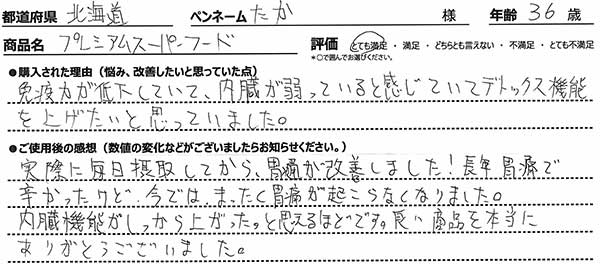 都道府県 北海道 ペンネーム たか 様 年齢 36 歳
商品名 プレミアムスーパーフード 評価 とても満足・満足・どちらとも言えない・不満足・とても不満足
*○で囲んでお選びください。
●購入された理由(悩み、改善したいと思っていた点)
免疫力が低下していて、内臓が弱っていると感じていてデトックス機能
を上げたいと思っていました。
●ご使用後の感想(数値の変化などがございましたらお知らせください。)
実際に毎日摂取してから、胃痛が改善しました!長年胃痛で
辛かったけど、今では、まったく胃痛が起こらなくなりました。
内臓機能がしっかり上がったと思えるほどです。良い商品を本当に
ありがとうございました。